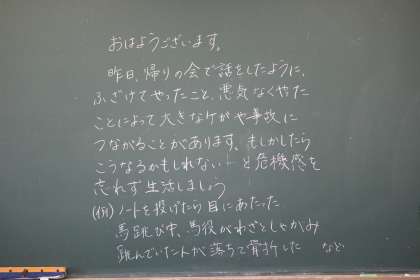 おはようございます。
昨日、帰りの会で話をしたように、
ふざけてやったこと、悪気なくやった
ことによって大きなケガや事故に
つながることがあります。もしかしたら
こうなるかもしれない…と危機感を
忘れず生活しましょう
(例)ノートを投げたら目にあたった
馬跳び中、馬役がわざとしゃがみ
跳んでいた人が落ちて骨折した など